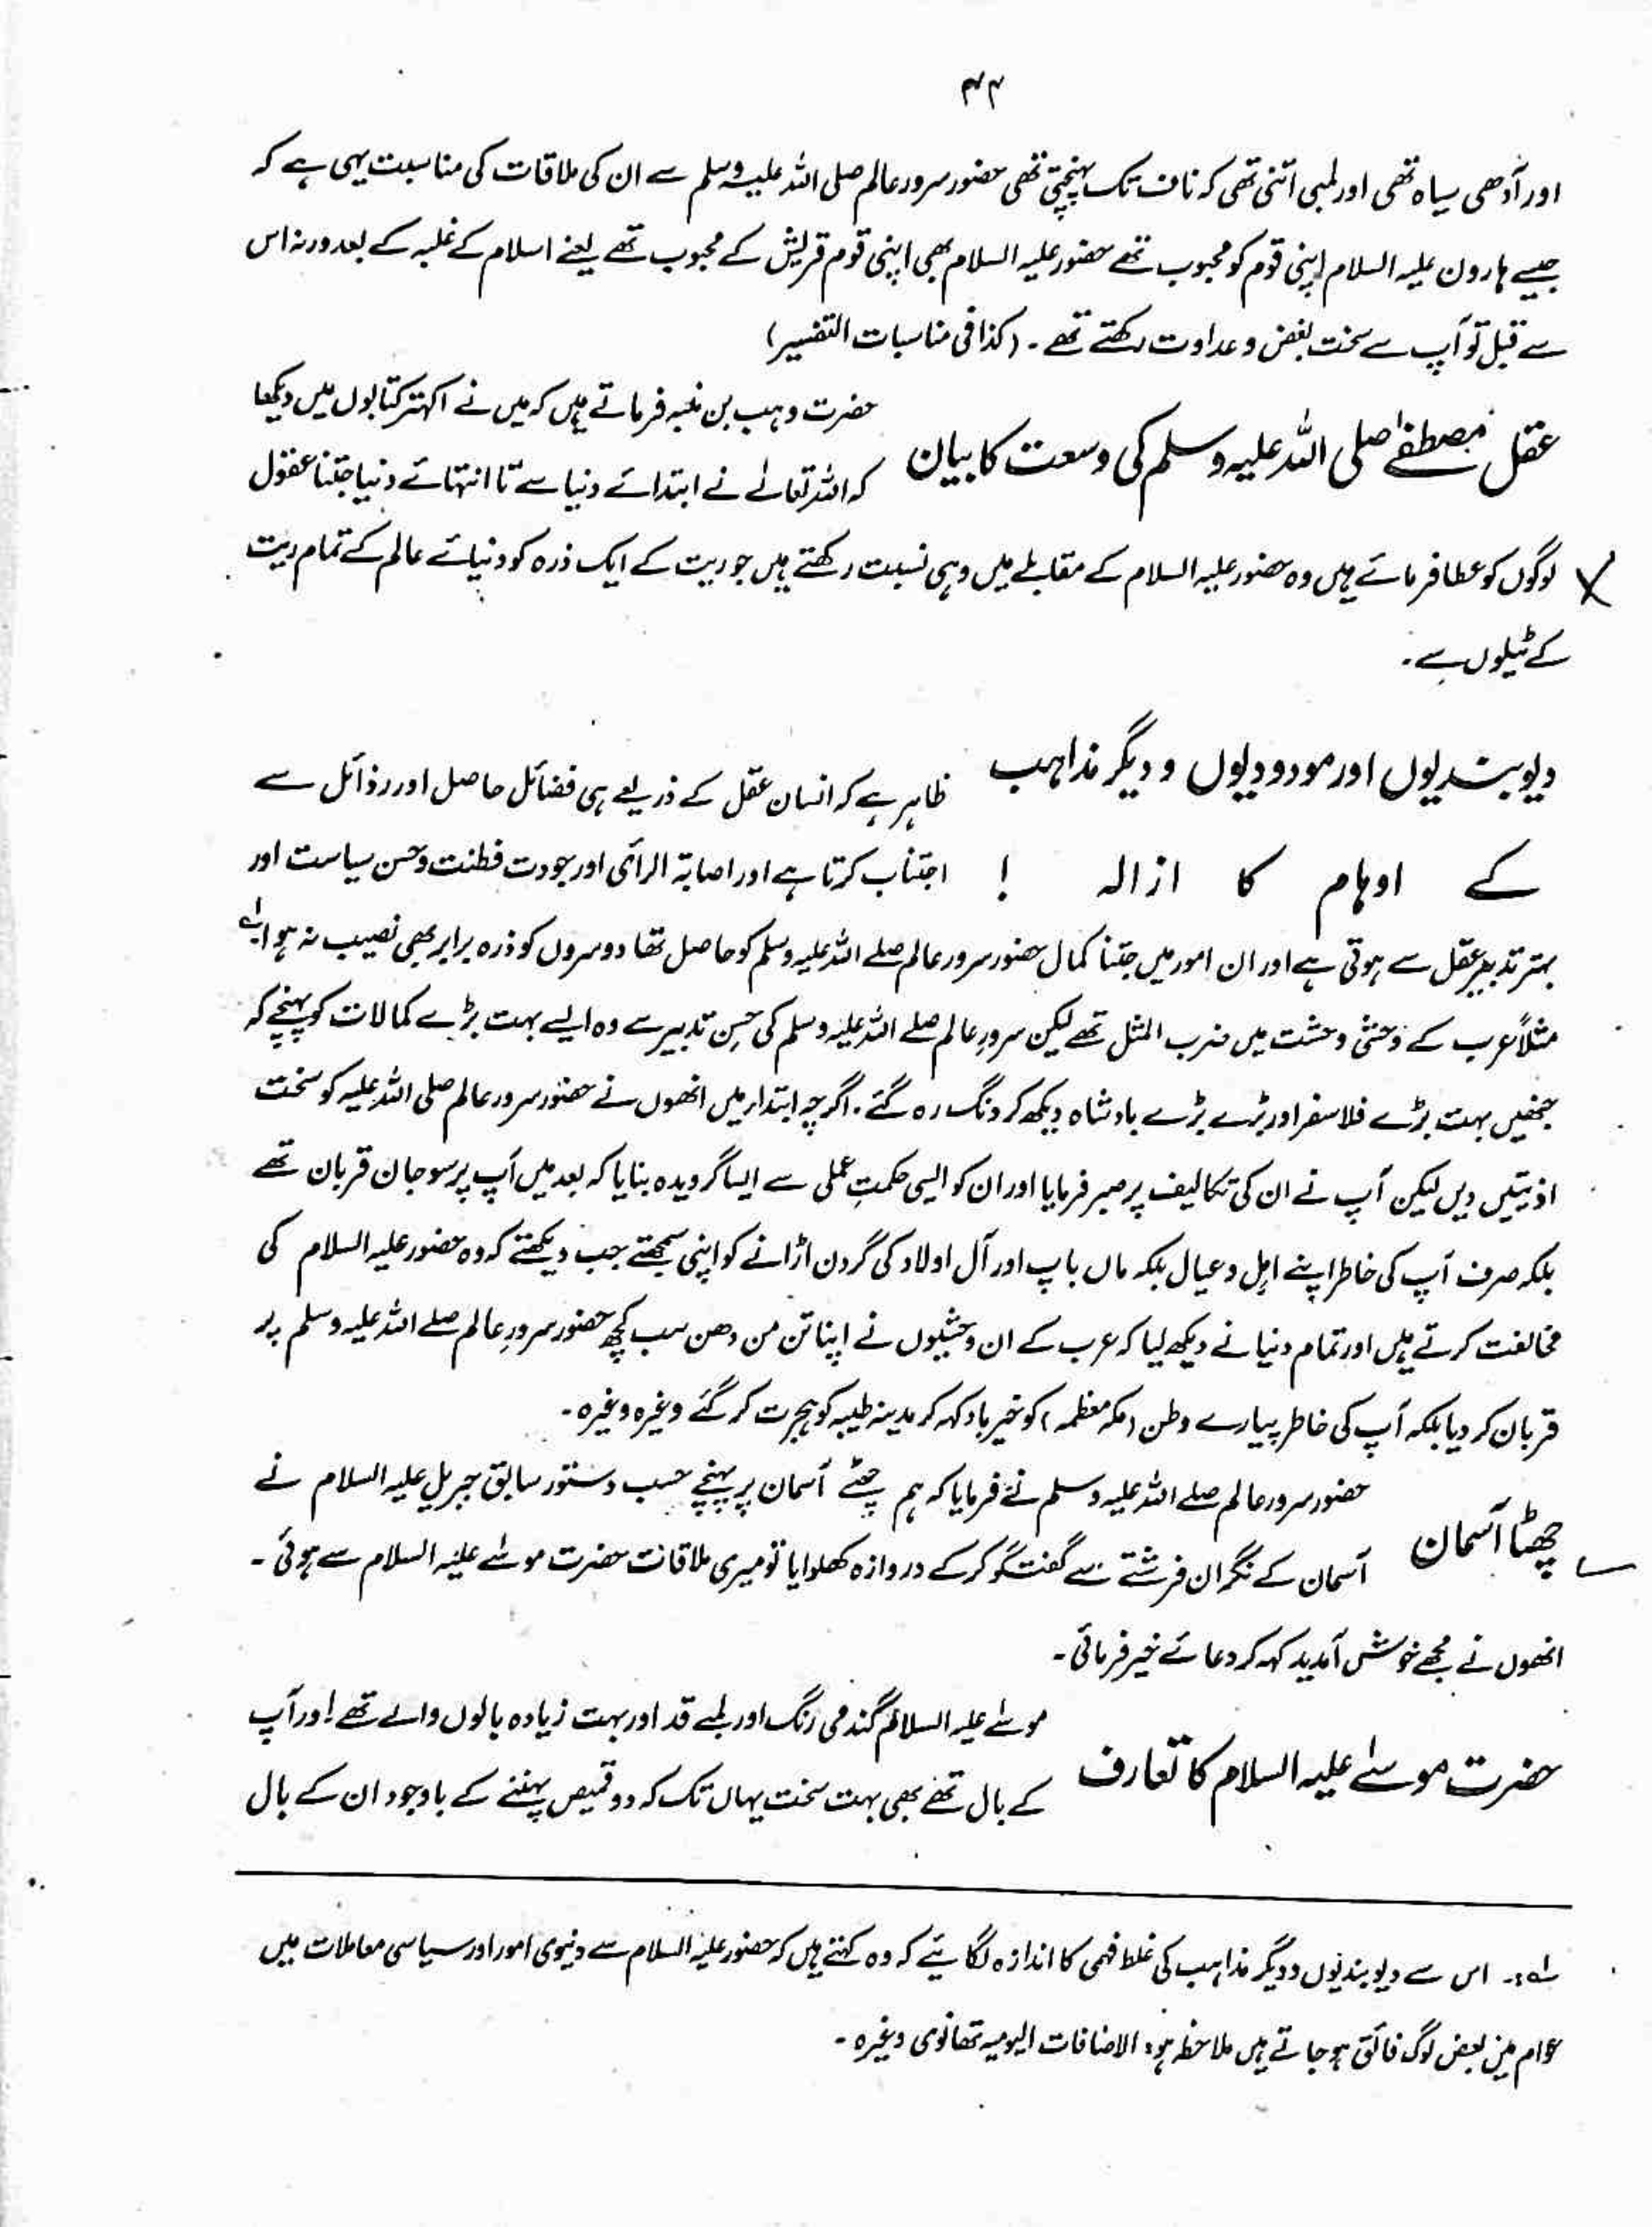 ۴۴
اور آدھی سیاہ تھی اور لمبی اتنی تھی کہ ناف تک پہنچتی تھی حضور سرور عالم صلی اللہ علیہ وسلم سے ان کی ملاقات کی مناسبت یہی ہے کہ
جیسے ہارون علیہ السلام اپنی قوم کو محبوب تھے حضور علیہ السلام بھی اپنی قوم قریش کے محبوب تھے یعنے اسلام کے غلبہ کے بعد ورنہ اس
سے قبل تو آپ سے سخت بغض و عداوت رکھتے تھے ۔ (کذا فی مناسبات التفسیر)
عقل مصطفےٰ صلی اللہ علیہ وسلم کی وسعت کا بیان
حضرت وہب بن منبہ فرماتے ہیں کہ میں نے اکہتر کتابوں میں دیکھا
کہ اللہ تعالےٰ نے ابتدائے دنیا سے تا انتہائے دنیا جتنا عقول
لوگوں کو عطا فرمائے ہیں وہ حضور علیہ السلام کے مقابلے میں وہی نسبت رکھتے ہیں جو ریت کے ایک ذرہ کو دنیائے عالم کے تمام ریت
کے ٹیلوں سے ۔
دیوبندیوں اور مودودیوں و دیگر مذاہب
کے اوہام کا ازالہ !
ظاہر ہے کہ انسان عقل کے ذریعے ہی فضائل حاصل اور رذائل سے
اجتناب کرتا ہے اور اصابۃ الرائ اور جودت فطنت و حسن سیاست اور
بہتر تدبیر عقل سے ہوتی ہے اور ان امور میں جتنا کمال حضور سرور عالم صلے اللہ علیہ وسلم کو حاصل تھا دوسروں کو ذرہ برابر بھی نصیب نہ ہوا لے
مثلاً عرب کے وحشی وحشت میں ضرب المثل تھے لیکن سرورِ عالم صلے اللہ علیہ وسلم کی حسن تدبیر سے وہ ایسے بہت بڑے کمالات کو پہنچے کہ
جنھیں بہت بڑے فلاسفر اور بڑے بڑے بادشاہ دیکھ کر دنگ رہ گئے ۔ اگرچہ ابتدار میں انھوں نے حضور سرور عالم صلی اللہ علیہ کو سخت
اذیتیں دیں لیکن آپ نے ان کی تکالیف پر صبر فرمایا اور ان کو ایسی حکمتِ عملی سے ایسا گرویدہ بنایا کہ بعد میں آپ پر سو جان قربان تھے
بلکہ صرف آپ کی خاطر اپنے اہل و عیال بلکہ ماں باپ اور آل اولاد کی گردن اڑانے کو اپنی سمجھتے جب دیکھتے کہ وہ حضور علیہ السلام کی
مخالفت کرتے ہیں اور تمام دنیا نے دیکھ لیا کہ عرب کے ان وحشیوں نے اپنا تن من دھن سب کچھ حضور سرورِ عالم صلے اللہ علیہ وسلم پر
قربان کر دیا بلکہ آپ کی خاطر پیارے وطن (مکہ معظمہ) کو خیر باد کہہ کر مدینہ طیبہ کو ہجرت کر گئے وغیرہ وغیرہ ۔
چھٹا آسمان
حضور سرور عالم صلے اللہ علیہ وسلم نے فرمایا کہ ہم چھٹے آسمان پر پہنچے حسب دستور سابق جبریل علیہ السلام نے
آسمان کے نگران فرشتے سے گفت گو کر کے دروازہ کھلوایا تو میری ملاقات حضرت موسےٰ علیہ السلام سے ہوئی ۔
انھوں نے مجھے خوش آمدید کہہ کر دعائے خیر فرمائی ۔
حضرت موسےٰ علیہ السلام کا تعارف
موسےٰ علیہ السلام گندمی رنگ اور لمبے قد اور بہت زیادہ بالوں والے تھے اور آپ
کے بال تھے بھی بہت سخت یہاں تک کہ دو قمیص پہننے کے باوجود ان کے بال
لہ :۔ اس سے دیوبندیوں و دیگر مذاہب کی غلط فہمی کا اندازہ لگائیے کہ وہ کہتے ہیں کہ حضور علیہ السلام سے دنیوی امور اور سیاسی معاملات میں
عوام میں بعض لوگ فائق ہو جاتے ہیں ملاحظہ ہو: الاضافات الیومیہ تھانوی وغیرہ ۔